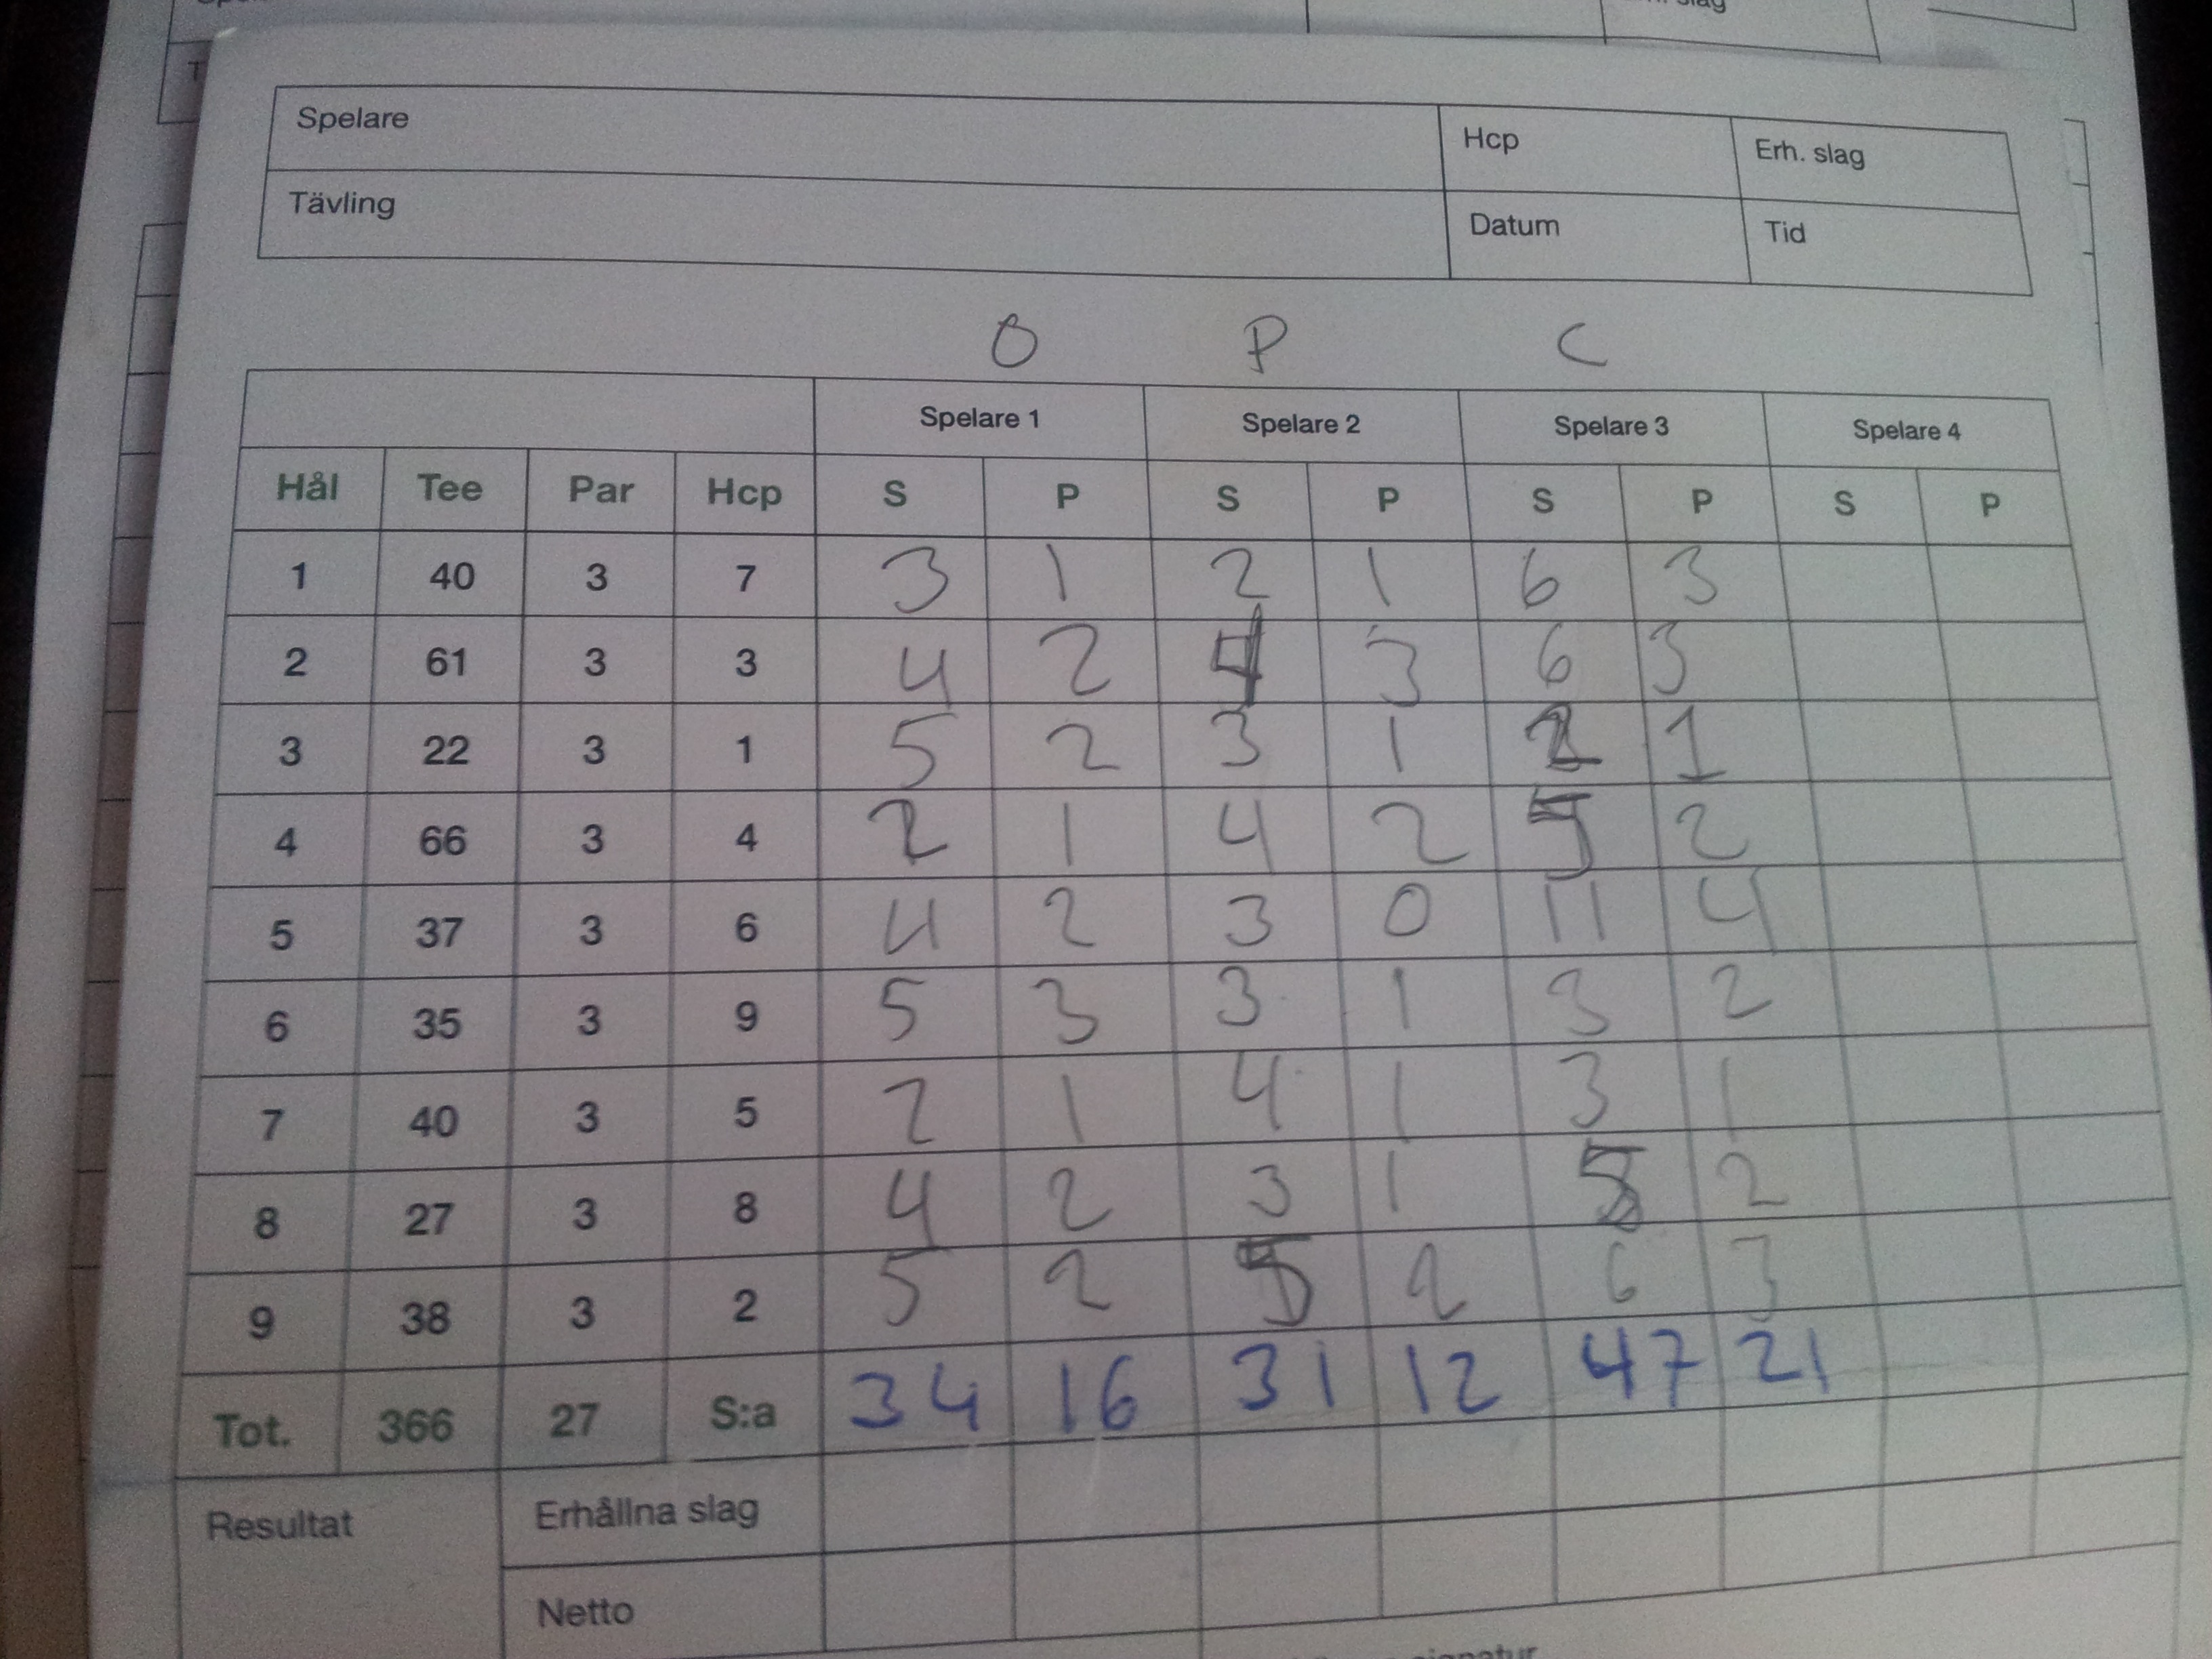 slag
Spelare Hcp Erh. slag
Tävling Datum Tid
O P C
Spelare 1 Spelare 2 Spelare 3 Spelare 4
Hål Tee Par Hcp S P S P S P S P
1 40 3 7 3 1 2 1 6 3
2 61 3 3 4 2 4 3 6 3
3 22 3 1 5 2 3 1 2 1
4 66 3 4 2 1 4 2 5 2
5 37 3 6 4 2 3 0 11 4
6 35 3 9 5 3 3 1 3 2
7 40 3 5 2 1 4 1 3 1
8 27 3 8 4 2 3 1 5 2
9 38 3 2 5 2 5 2 6 3
Tot. 366 27 S:a 34 16 31 12 47 21
Resultat Erhållna slag
Netto